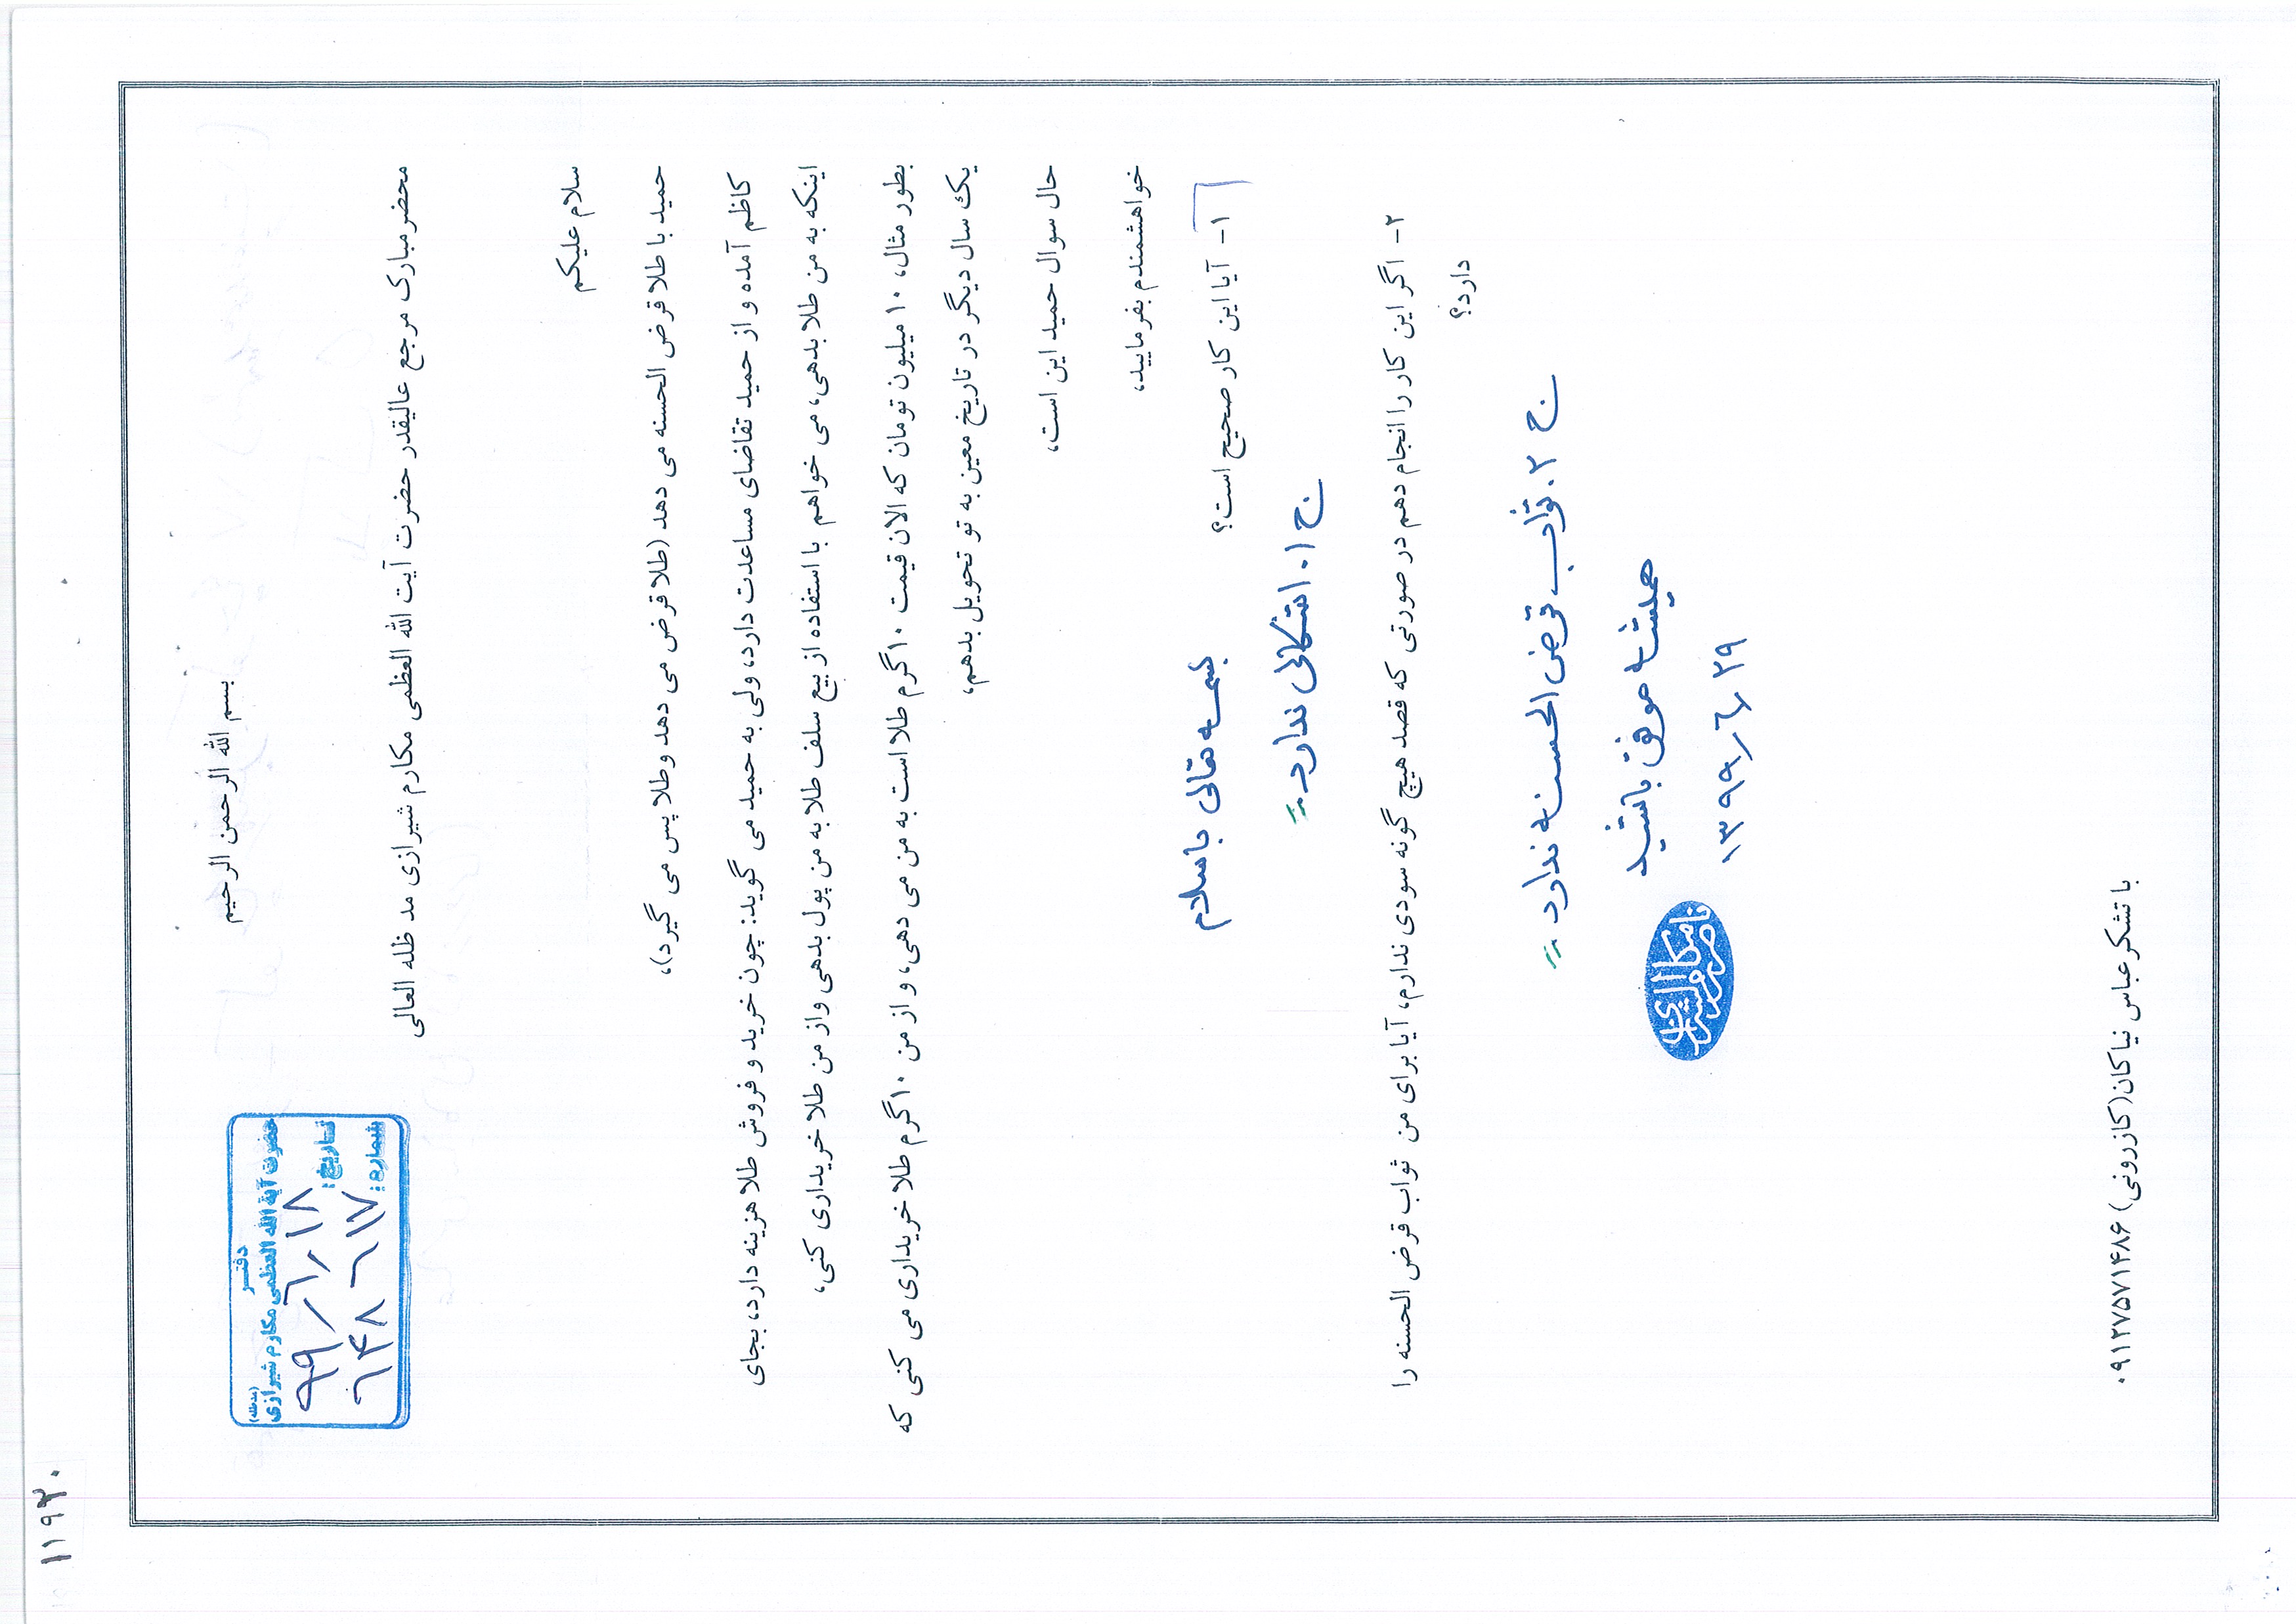 بسم الله الرحمن الرحیم
دفتر
حضرت آیة الله العظمی مکارم شیرازی (مدظله)
تاریخ: ۹۹/۶/۱۸
شماره: ۶۴۸۶۱۷
محضر مبارک مرجع عالیقدر حضرت آیت الله العظمی مکارم شیرازی مد ظله العالی
سلام علیکم
حمید با طلا قرض الحسنه می دهد (طلا قرض می دهد و طلا پس می گیرد)،
کاظم آمده و از حمید تقاضای مساعدت دارد، ولی به حمید می گوید: چون خرید و فروش طلا هزینه دارد، بجای
اینکه به من طلا بدهی، می خواهم با استفاده از بیع سلف طلا به من پول بدهی و از من طلا خریداری کنی،
بطور مثال، ۱۰ میلیون تومان که الان قیمت ۱۰ گرم طلا است به من می دهی، و از من ۱۰ گرم طلا خریداری می کنی که
یک سال دیگر در تاریخ معین به تو تحویل بدهم،
حال سوال حمید این است،
خواهشمندم بفرمایید،
۱- آیا این کار صحیح است؟
بسمه تعالی با سلام
ج ۱. اشکالی ندارد.
۲- اگر این کار را انجام دهم در صورتی که قصد هیچ گونه سودی ندارم، آیا برای من ثواب قرض الحسنه را
دارد؟
ج ۲. ثواب قرض الحسنه ندارد.
همیشه موفق باشید
۱۳۹۹/۶/۲۹
ناصر مکارم شیرازی
با تشکر عباس نیاکان(کازرونی) ۰۹۱۲۷۵۷۱۴۸۶